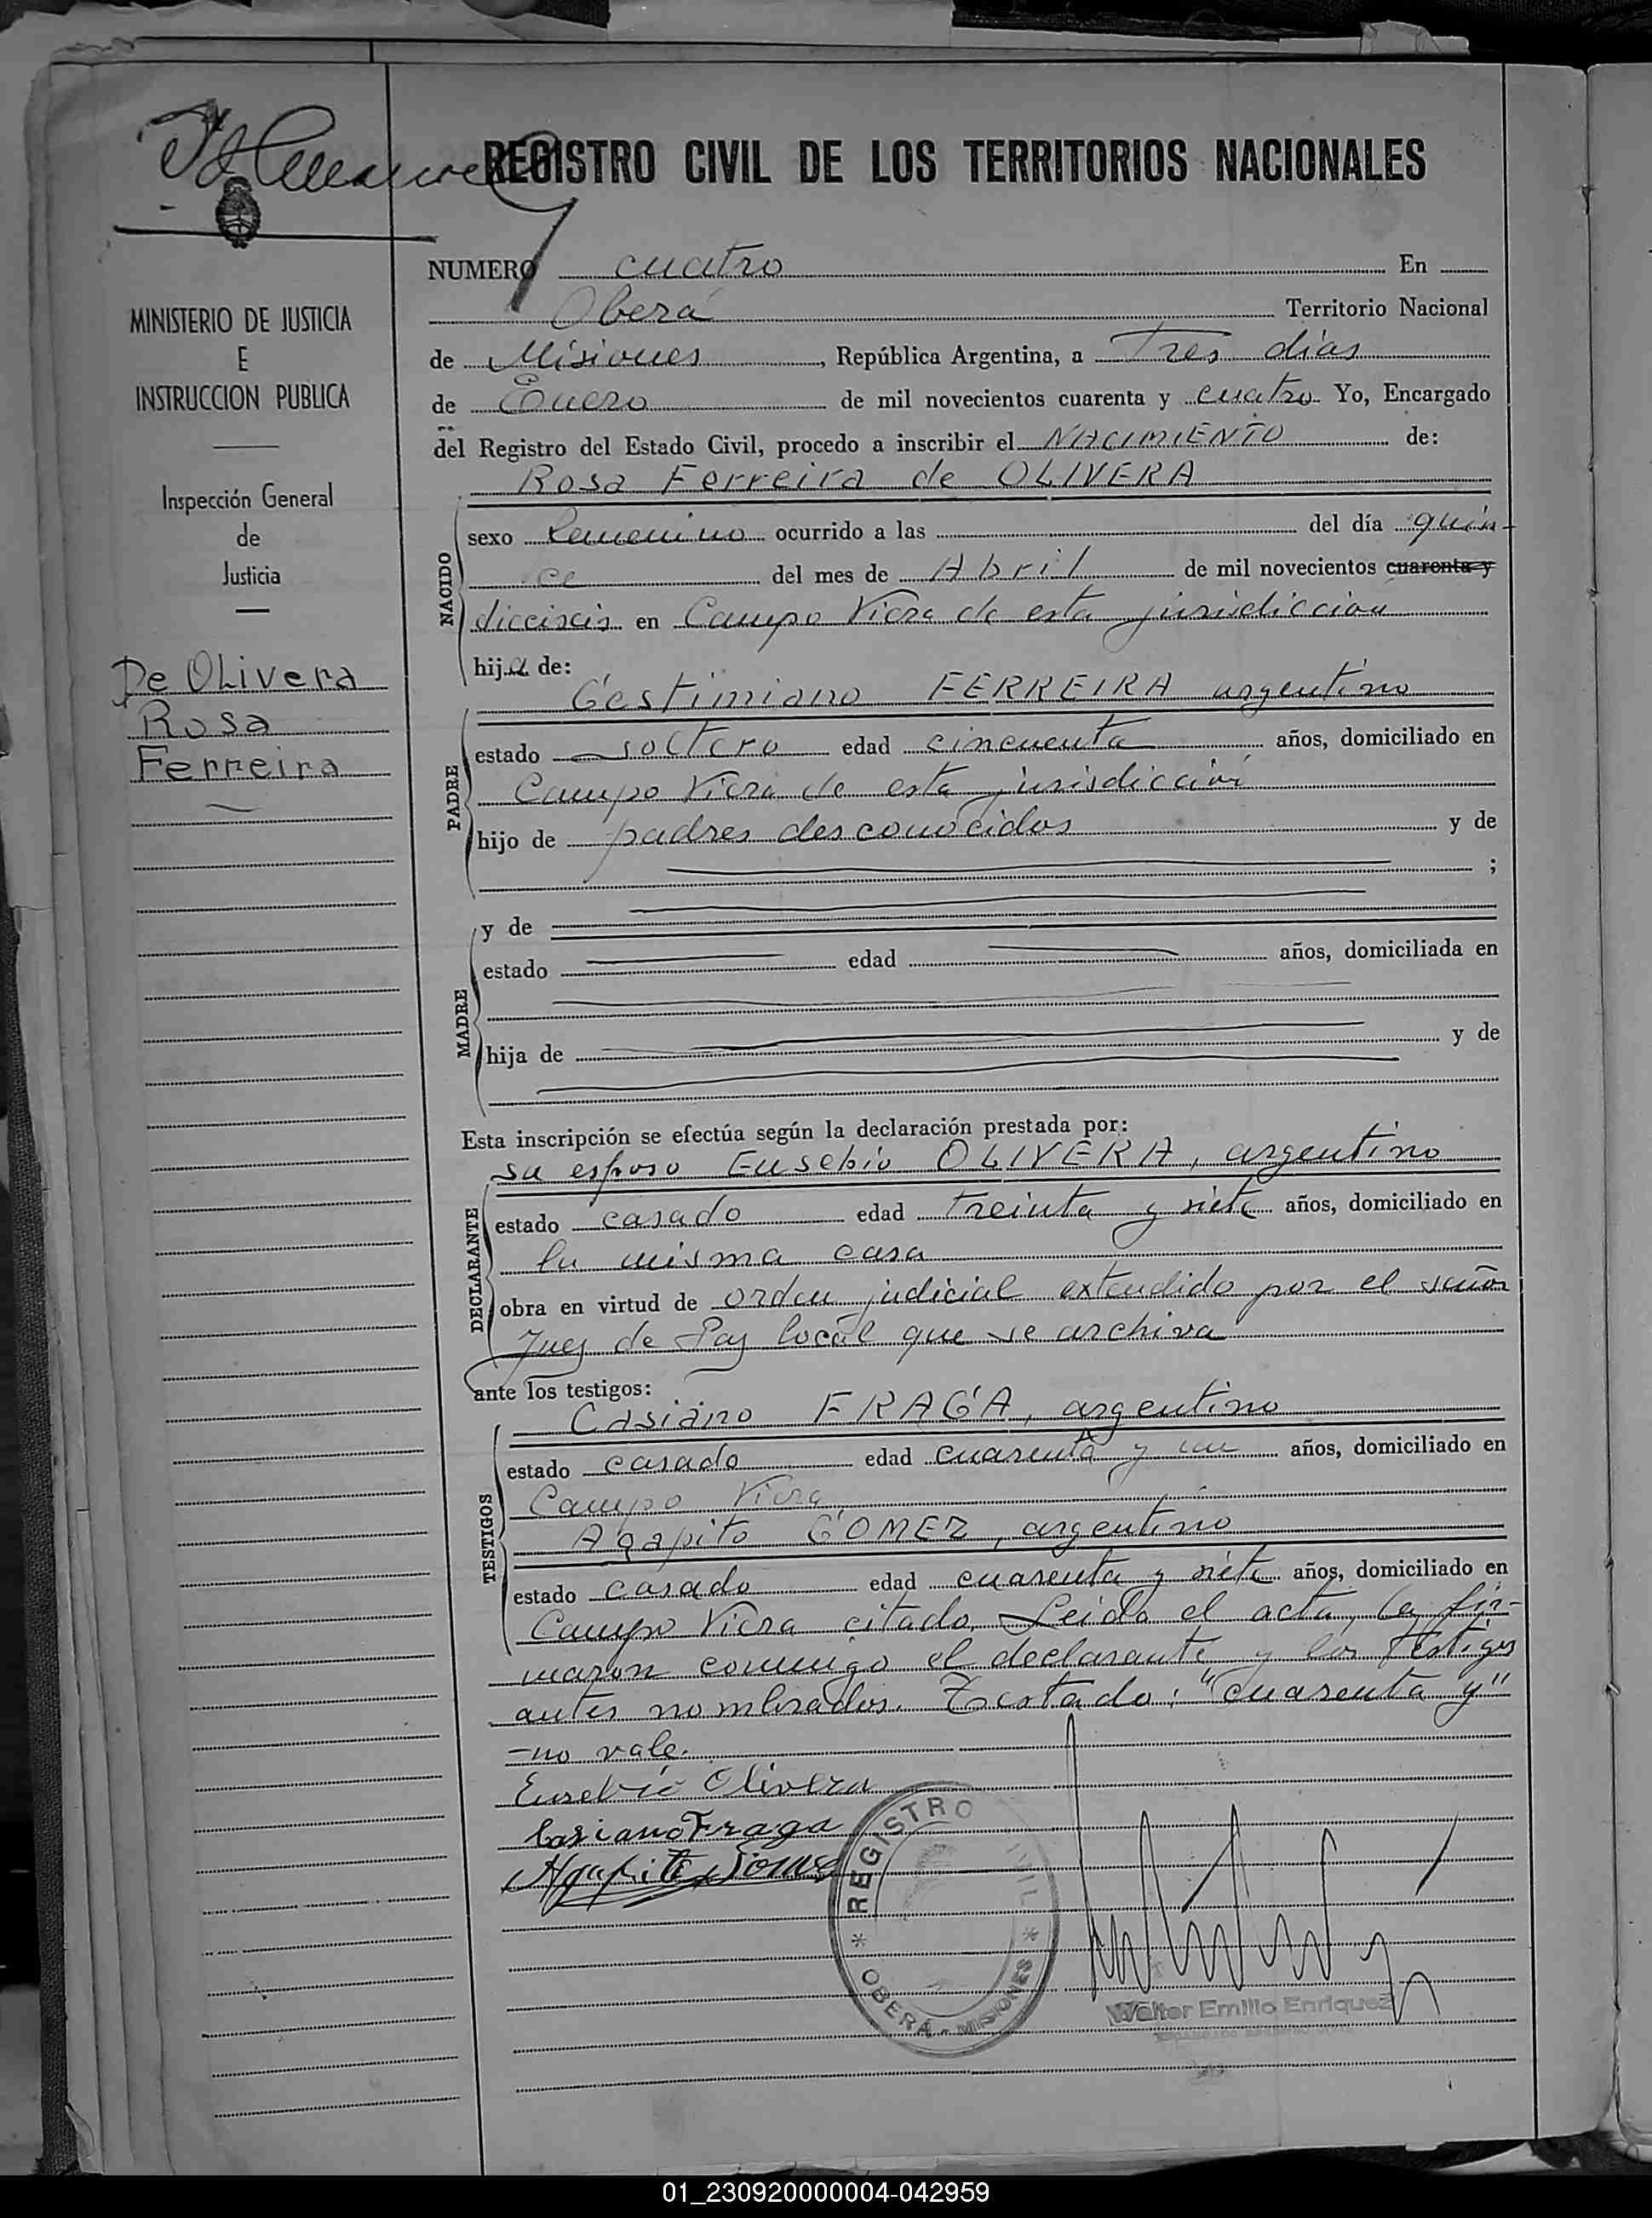 REGISTRO CIVIL DE LOS TERRITORIOS NACIONALES
MINISTERIO DE JUSTICIA
E
INSTRUCCION PUBLICA
Inspección General
de
Justicia
De OLivera
Rosa
Ferreira
NUMERO cuatro En
Oberá Territorio Nacional
de Misiones, República Argentina, a Tres días
de Enero de mil novecientos cuarenta y cuatro Yo, Encargado
del Registro del Estado Civil, procedo a inscribir el NACIMIENTO de:
Rosa Ferreira de OLIVERA
NACIDO
sexo femenino ocurrido a las del día quin-
ce del mes de Abril de mil novecientos cuarenta y
dieciseis en Campo Viera de esta jurisdiccion
hija de:
PADRE
Gestimiano FERREIRA argentino
estado soltero edad cincuenta años, domiciliado en
Campo Viera de esta jurisdicción
hijo de padres desconocidos y de
;
MADRE
y de
estado edad años, domiciliada en
hija de y de
Esta inscripción se efectúa según la declaración prestada por:
DECLARANTE
su esposo Eusebio OLIVERA, argentino
estado casado edad treinta y siete años, domiciliado en
la misma casa
obra en virtud de orden judicial extendido por el señor
Juez de Paz local que se archiva
ante los testigos:
TESTIGOS
Casiano FRAGA, argentino
estado casado edad cuarenta y un años, domiciliado en
Campo Viera
Agapito GOMEZ, argentino
estado casado edad cuarenta y siete años, domiciliado en
Campo Viera citado. Leida el acta, la fir-
maron conmigo el declarante y los testigos
antes nombrados. Testado: "cuarenta y"
-no vale.
Eusebio Olivera
Casiano Fraga
Agapito Gomez
REGISTRO CIVIL * OBERÁ - MISIONES *
Walter Emilio Enriquez
01_230920000004-042959